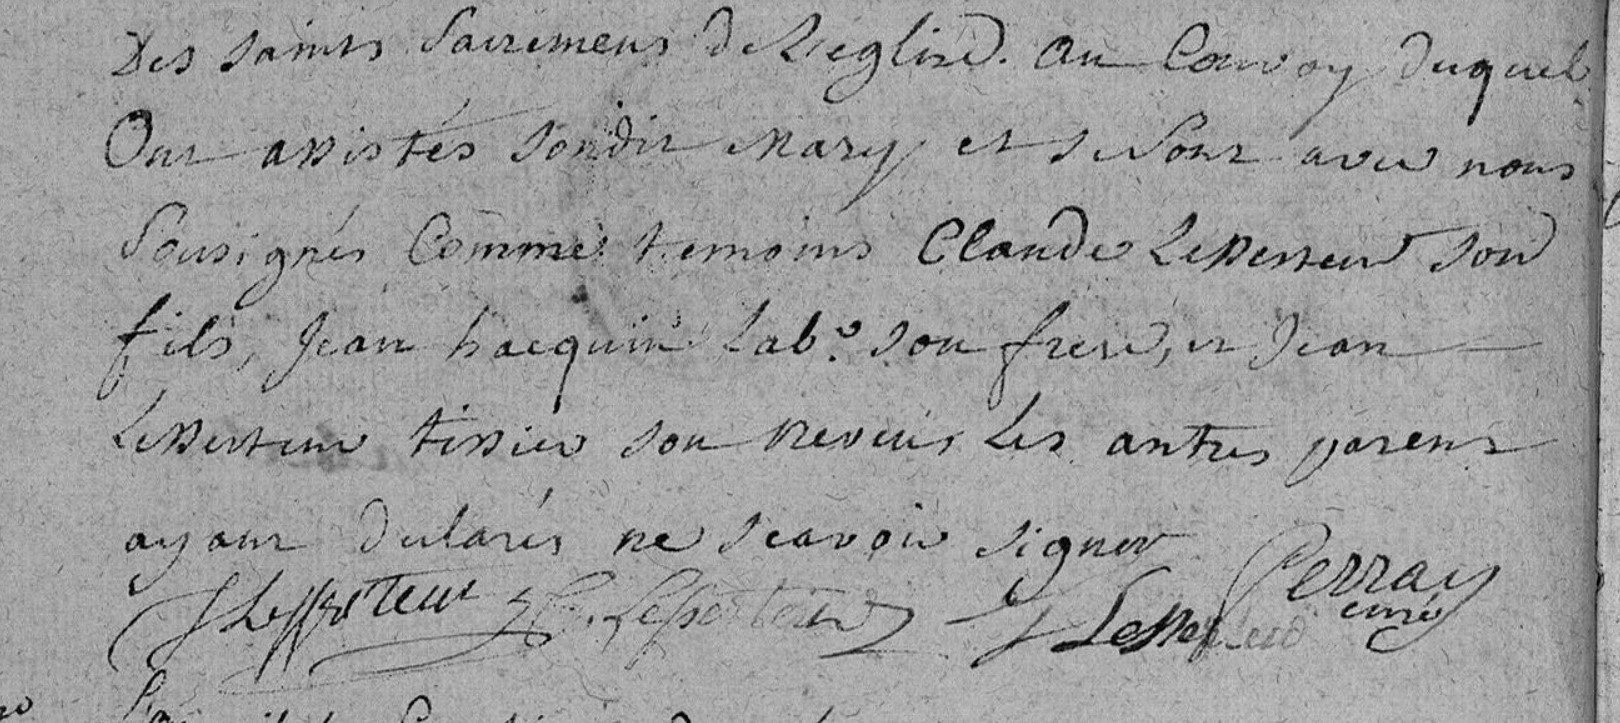 Des saints Sacremens de L'eglise. au Convoy duquel
Ont assistés sondit mary et se sont avec nous
Sousignés Comme temoins Claude Lesserteur son
fils, Jean hacquin Lab.r son frere, et Jean
Lesserteur tissier son neveu, Les autres parens
ayant declarés ne scavoir signer
J Lesserteur C. Lesserteur J Lesserteur Perray
curé